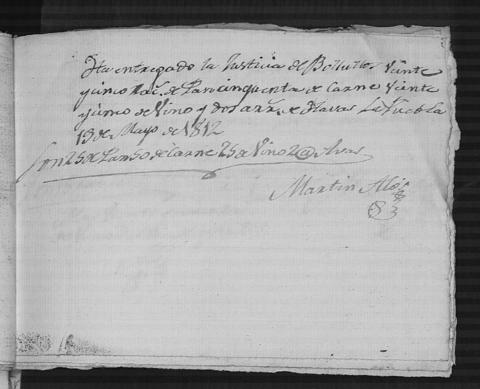 Ha entregado la Justicia de Bollullos Veinte
y cinco Rac. de Pan cinquenta de Carne Veinte
y cinco de Vino y dos arr.s de Havas La Puebla
13 de Mayo de 1812
Son 25 de Pan 50 de Carne 25 de Vino 2@
Martin